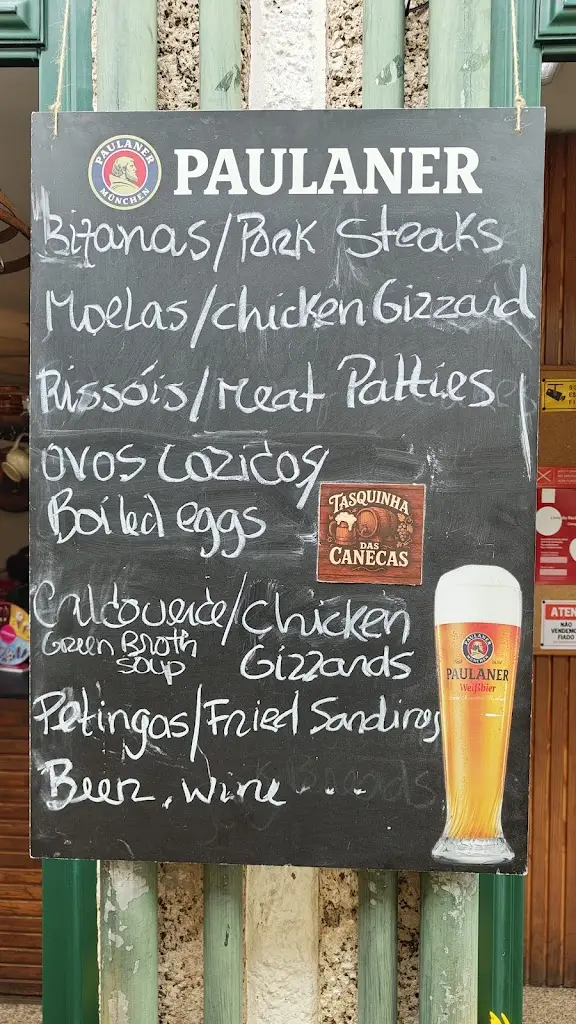 PAULANER
MÜNCHEN
PAULANER
Bifanas/Pork Steaks
Moelas/chicken Gizzard
Rissóis/Meat Patties
ovos cozidos/
Boiled eggs
TASQUINHA
DAS
CANECAS
Caldoverde/Chicken
Green Broth
soup
Gizzards
PAULANER
Weißbier
Petingas/Fried Sardines
Beer, wine ...
ATEN
NÃO
VENDEM
FIADO